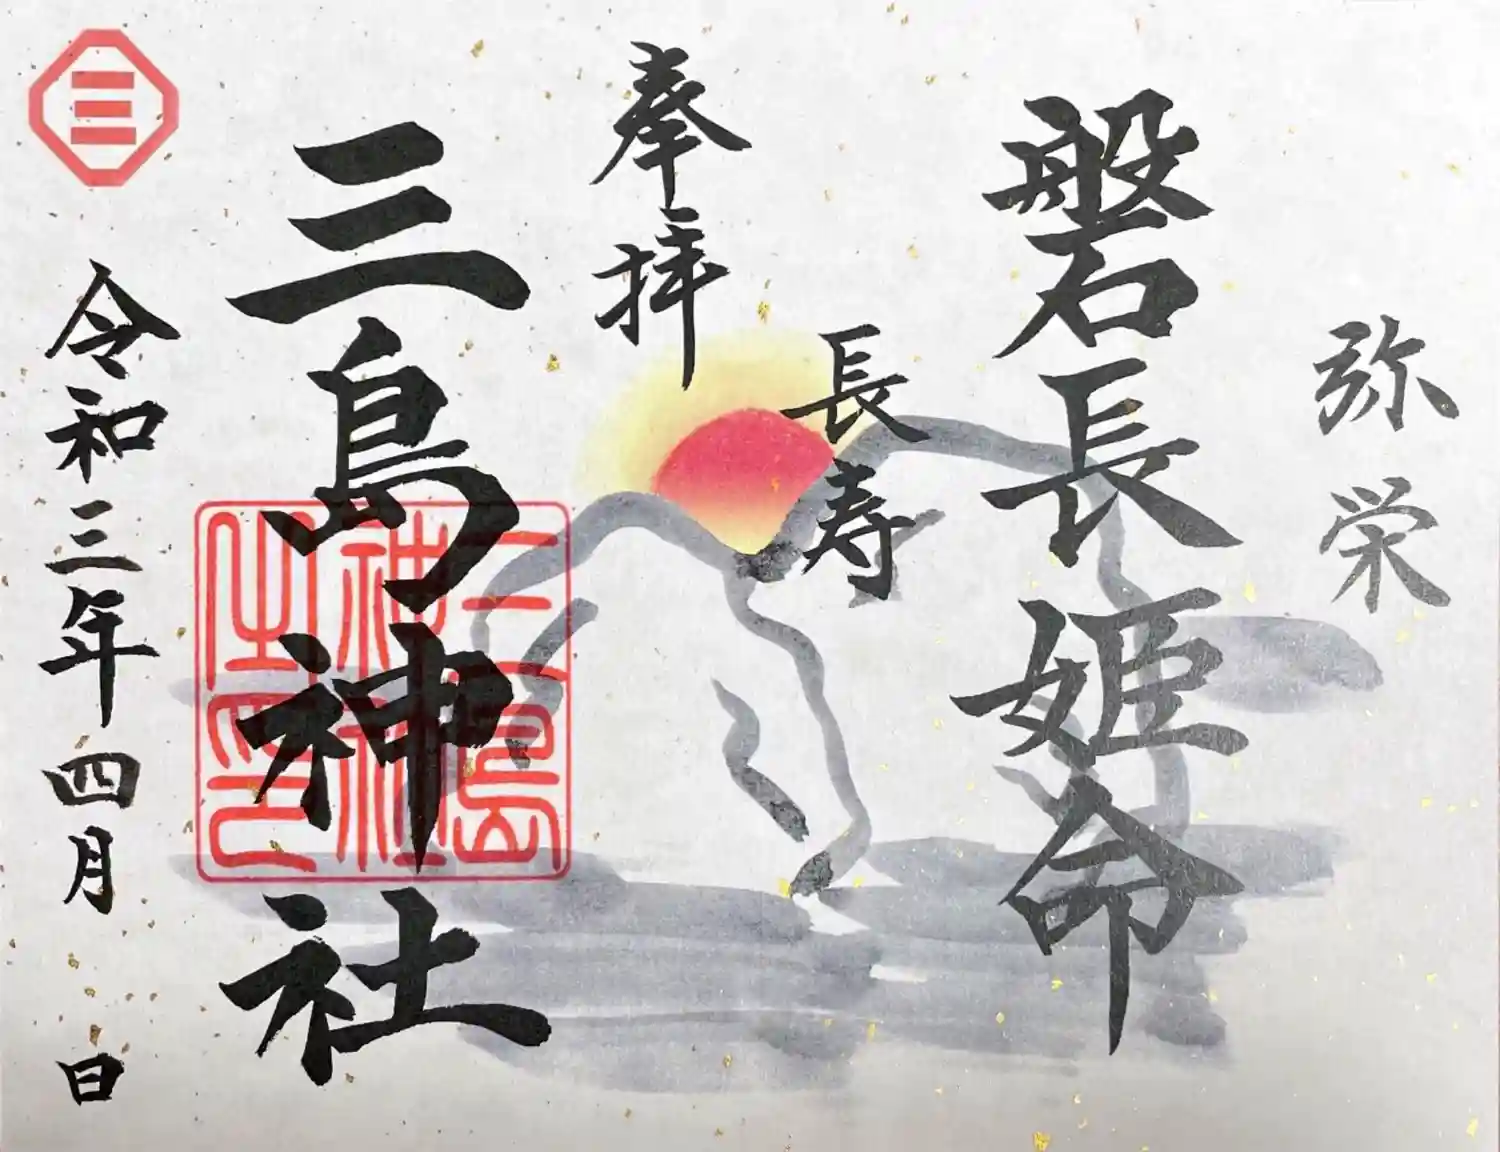 弥栄
磐長姫命
長寿
奉拝
三島神社
三島神社之印
令和三年四月 日
三